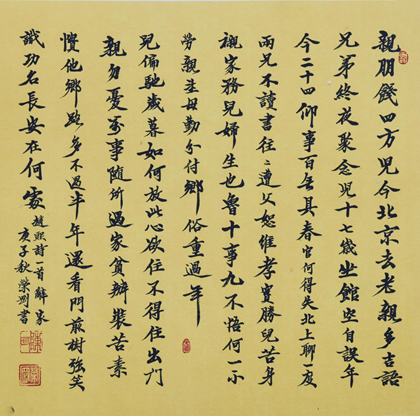 親朋餞四方兒今北京去老親多吉語
兄弟終夜聚念兒十七歲坐館空自誤年
今二十四仰事百無具春官何得失北上聊一度
兩兄不讀書往往遭父怒維孝實勝兒苦身
襯家務兒婦生也魯十事九不悟何一小
勞親老母勤分付鄉俗重過年
兒偏馳歲暮如何放此心欲住不得住出門
親勿憂萬事隨所遇家貧辦裝苦素
慣他鄉路多不過半年還看門前樹強笑
識功名長安在何處
趙熙詩一首辭家
庚子秋榮剛書